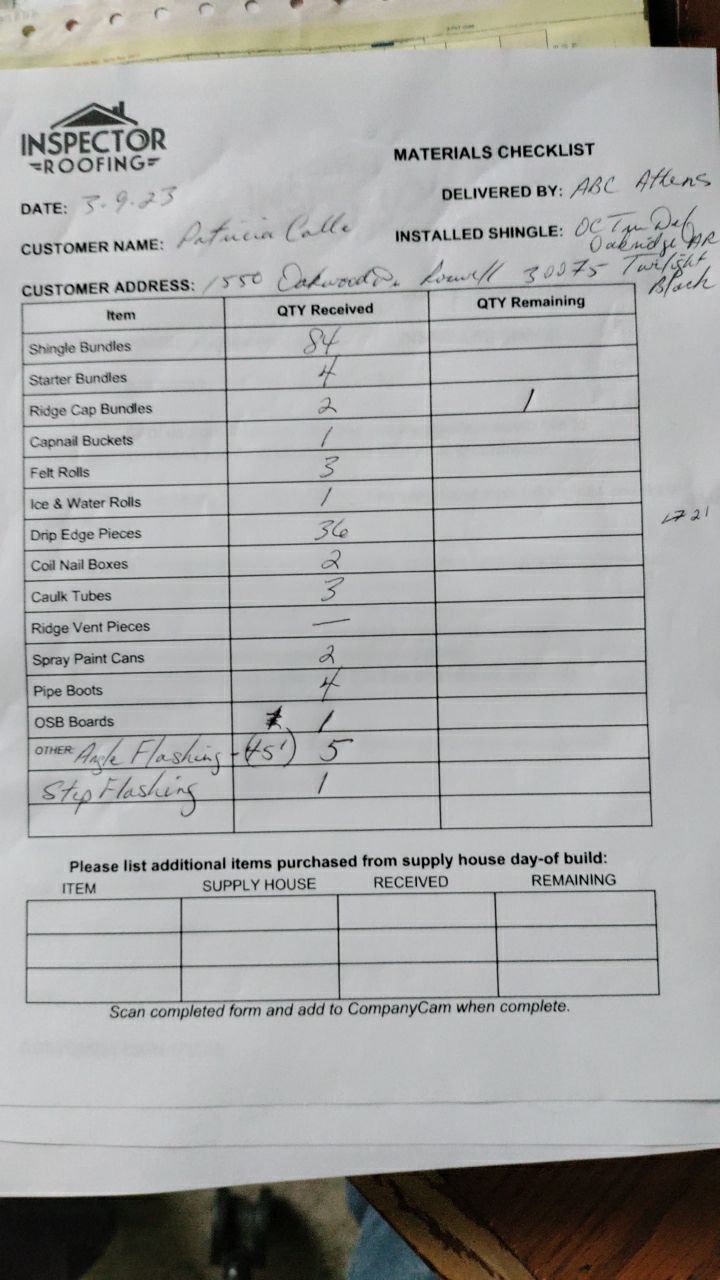 INSPECTOR
ROOFING
MATERIALS CHECKLIST
DATE: 3-9-23
DELIVERED BY: ABC Athens
CUSTOMER NAME: Patricia Calle
INSTALLED SHINGLE: OC Tru Def
Oakridge AR
CUSTOMER ADDRESS: 1550 Oakwood Dr. Roswell 30075 Twilight
Black
Item QTY Received QTY Remaining
Shingle Bundles 84
Starter Bundles 4
Ridge Cap Bundles 2 1
Capnail Buckets 1
Felt Rolls 3
Ice & Water Rolls 1
Drip Edge Pieces 36
Coil Nail Boxes 2
Caulk Tubes 3
Ridge Vent Pieces —
Spray Paint Cans 2
Pipe Boots 4
OSB Boards 1
OTHER: Angle Flashing - (45') 5
Step Flashing 1
Please list additional items purchased from supply house day-of build:
ITEM SUPPLY HOUSE RECEIVED REMAINING
Scan completed form and add to CompanyCam when complete.